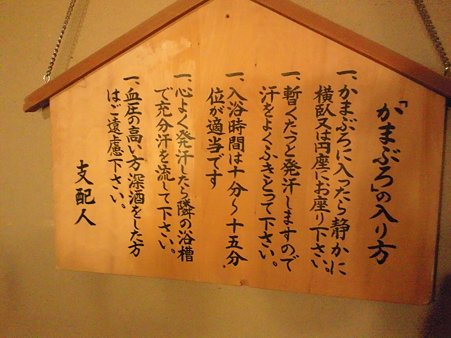 「かまぶろ」の入り方
一、かまぶろに入ったら静かに
横臥又は円座にお座り下さい。
一、暫くたつと発汗しますので
汗をよくふきとって下さい。
一、入浴時間は十分〜十五分
位が適当です
一、心よく発汗したら隣の浴槽
で充分汗を流して下さい。
一、血圧の高い方 深酒をした方
はご遠慮下さい。
支配人